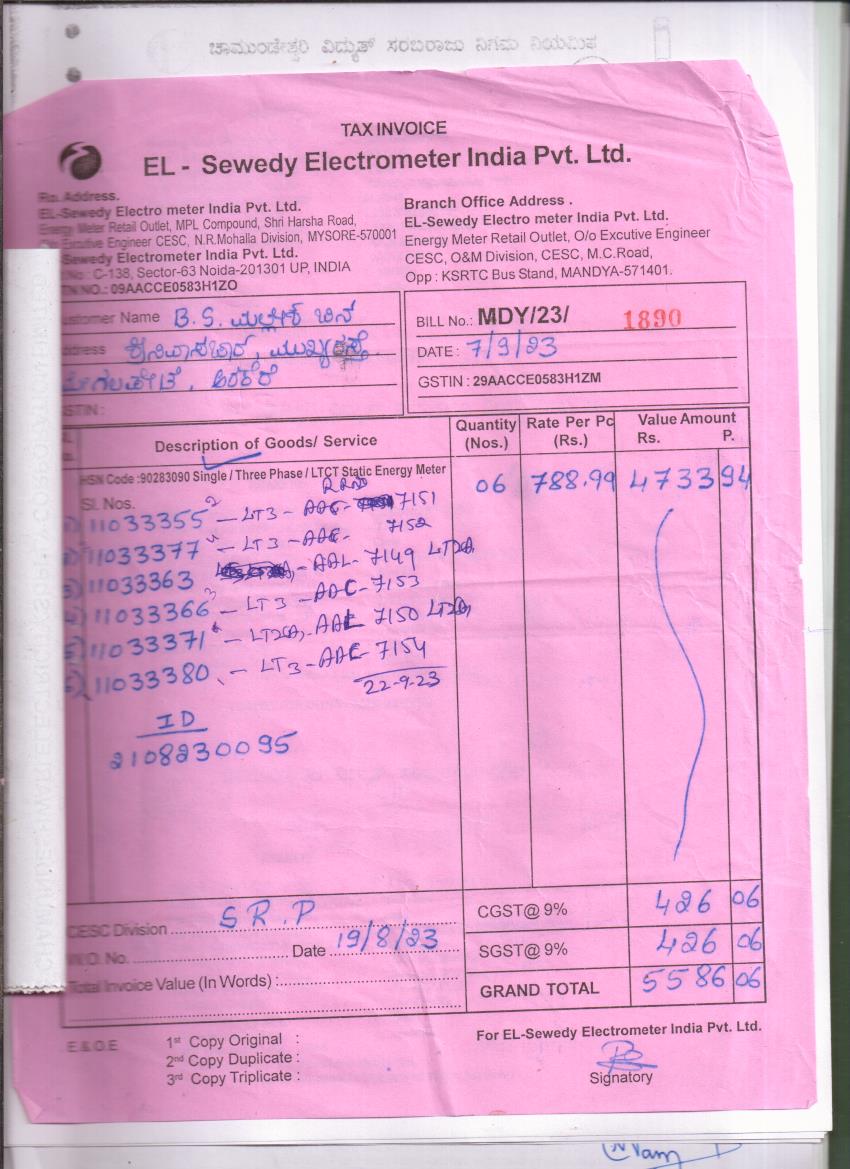 ಚಾಮುಂಡೇಶ್ವರಿ ವಿದ್ಯುತ್ ಸರಬರಾಜು ನಿಗಮ ನಿಯಮಿತ
TAX INVOICE
EL - Sewedy Electrometer India Pvt. Ltd.
Address.
EL-Sewedy Electro meter India Pvt. Ltd.
Energy Meter Retail Outlet, MPL Compound, Shri Harsha Road,
Excutive Engineer CESC, N.R.Mohalla Division, MYSORE-570001
Sewedy Electrometer India Pvt. Ltd.
C-138, Sector-63 Noida-201301 UP, INDIA
NO.: 09AACCE0583H1ZO
Branch Office Address .
EL-Sewedy Electro meter India Pvt. Ltd.
Energy Meter Retail Outlet, O/o Excutive Engineer
CESC, O&M Division, CESC, M.C.Road,
Opp : KSRTC Bus Stand, MANDYA-571401.
Customer Name B.S. ಮಲ್ಲೇಶ್ ಬಿನ್
Address ಶ್ರೀನಿವಾಸಚಾರ್, ಮುಖ್ಯರಸ್ತೆ
ಅರಕೆರೆ
GSTIN :
BILL No.: MDY/23/ 1890
DATE : 7/9/23
GSTIN : 29AACCE0583H1ZM
Description of Goods/ Service Quantity (Nos.) Rate Per Pc (Rs.) Value Amount Rs. P.
HSN Code :90283090 Single / Three Phase / LTCT Static Energy Meter 06 788.99 4733 94
Sl. Nos.
1) 11033355 - LT3 - AAC- 7151
2) 11033377 - LT3 - AAE- 7152
3) 11033363 - AAL- 7149 LT2a,
4) 11033366 - LT3 - AAC- 7153
5) 11033371 - LT2a, - AAL 7150 LT2a,
6) 11033380 - LT3 - AAE- 7154
22-9-23
ID
2108230095
CESC Division S R . P
W.O. No. Date 19/8/23
Total Invoice Value (In Words) :
CGST@ 9% 426 06
SGST@ 9% 426 06
GRAND TOTAL 5586 06
E & O.E
1st Copy Original :
2nd Copy Duplicate :
3rd Copy Triplicate :
For EL-Sewedy Electrometer India Pvt. Ltd.
Signatory